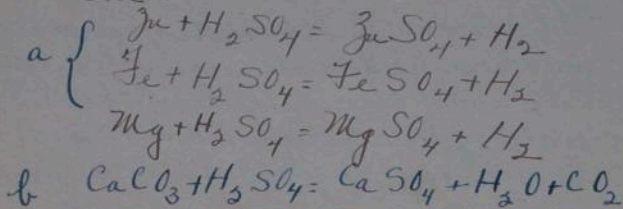 a { Zn + H₂SO₄ = ZnSO₄ + H₂
Fe + H₂SO₄ = FeSO₄ + H₂
Mg + H₂SO₄ = MgSO₄ + H₂
b CaCO₃ + H₂SO₄ = CaSO₄ + H₂O + CO₂